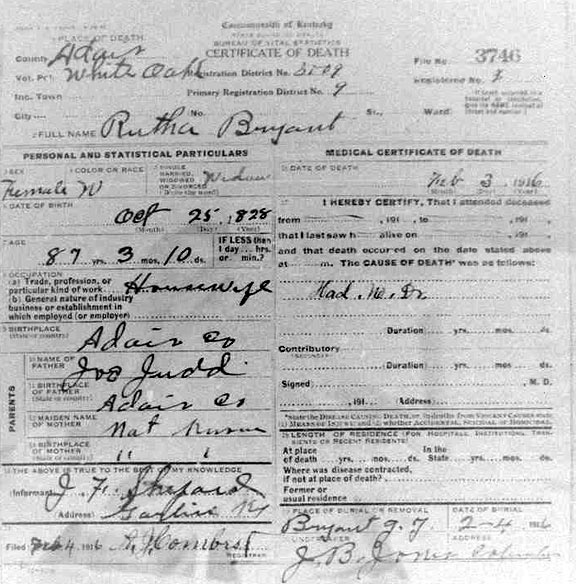 Commonwealth of Kentucky
PLACE OF DEATH
BUREAU OF VITAL STATISTICS
County Adair
CERTIFICATE OF DEATH
File No. 3746
Vot. Pct. White Oak
Registration District No.
Registered No.
Inc. Town
Primary Registration District No. 9
City No. St., Ward
FULL NAME Rutha Bryant
PERSONAL AND STATISTICAL PARTICULARS
SEX COLOR OR RACE SINGLE MARRIED, WIDOWED OR DIVORCED
Female W Widow
DATE OF BIRTH
Oct 25, 1828
(Month) (Day) (Year)
AGE
87 yrs. 3 mos. 10 ds.
IF LESS than 1 day ... hrs. or ... min.?
OCCUPATION
(a) Trade, profession, or particular kind of work Housewife
(b) General nature of industry business or establishment in which employed (or employer)
BIRTHPLACE
Adair Co
PARENTS
NAME OF FATHER Joe Judd
BIRTHPLACE OF FATHER Adair Co
MAIDEN NAME OF MOTHER Not
BIRTHPLACE OF MOTHER " "
THE ABOVE IS TRUE TO THE BEST OF MY KNOWLEDGE
(Informant) J. F. Shepard
(Address)
Filed Feb 4 1916
REGISTRAR
MEDICAL CERTIFICATE OF DEATH
DATE OF DEATH
Feb 3, 1916
(Month) (Day) (Year)
I HEREBY CERTIFY, That I attended deceased
from , 191 , to , 191 ,
that I last saw h alive on , 191 ,
and that death occurred on the date stated above
at m. The CAUSE OF DEATH was as follows:
Had no Dr
Duration yrs. mos. ds.
Contributory
Duration yrs. mos. ds.
Signed M. D.
, 191 (Address)
*State the DISEASE CAUSING DEATH, or, in deaths from VIOLENT CAUSES state (1) MEANS OF INJURY; and (2) whether ACCIDENTAL, SUICIDAL or HOMICIDAL.
LENGTH OF RESIDENCE (FOR HOSPITALS, INSTITUTIONS, TRANSIENTS OR RECENT RESIDENTS)
At place of death yrs. mos. ds. In the State yrs. mos. ds.
Where was disease contracted, if not at place of death?
Former or usual residence
PLACE OF BURIAL OR REMOVAL DATE OF BURIAL
Bryant g. y. 2-4 1916
UNDERTAKER ADDRESS
J. B. Jones